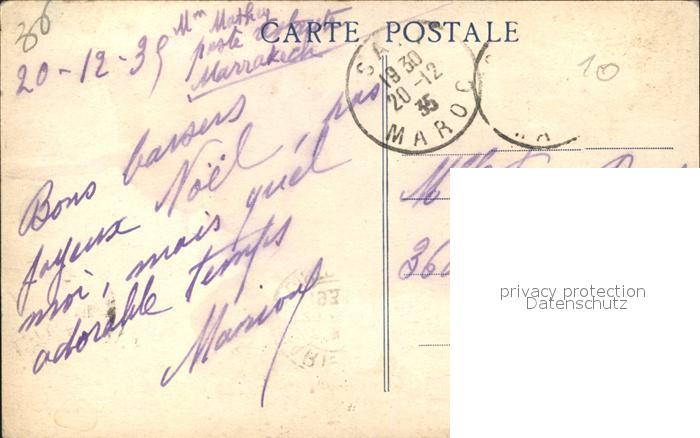 36
CARTE POSTALE
20-12-35
Mme Mathey
poste
Marrakech
SA
19 30
20-12
35
MAROC
10
Bons baisers
Joyeux Noël, pas
moi, mais quel
adorable temps
Marion
Mlle
36
privacy protection
Datenschutz